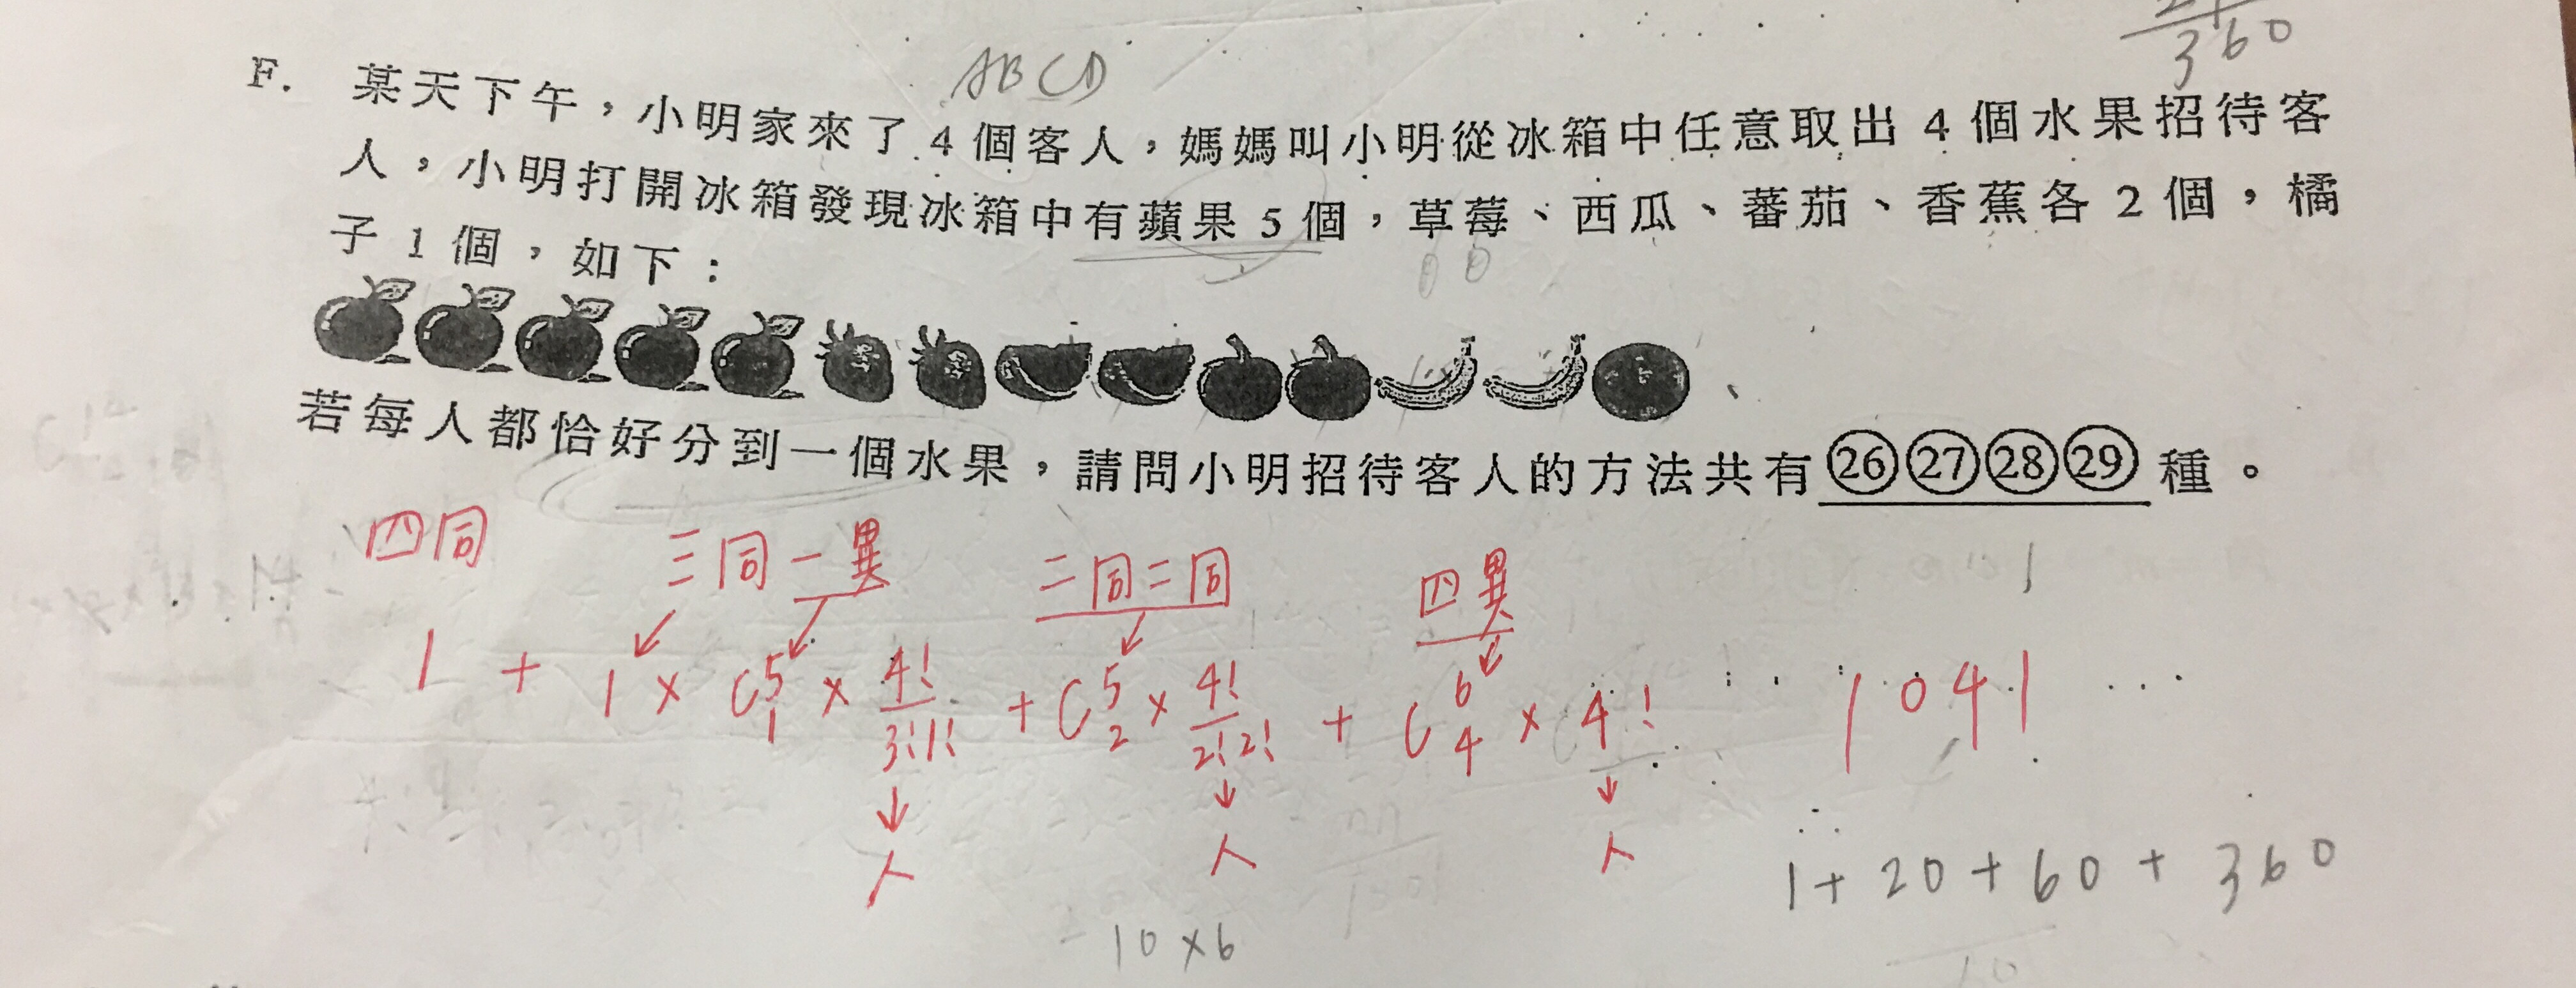 360
ABCD
F. 某天下午，小明家來了4個客人，媽媽叫小明從冰箱中任意取出4個水果招待客
人，小明打開冰箱發現冰箱中有蘋果5個，草莓、西瓜、蕃茄、香蕉各2個，橘
子1個，如下：
若每人都恰好分到一個水果，請問小明招待客人的方法共有㉖㉗㉘㉙種。
四同 三同一異 二同二同 四異
1 + 1 × C⁵₁ × 4!/3!1! + C⁵₂ × 4!/2!2! + C⁶₄ × 4! 1041
人 人 人
1+20+60+360
10×6